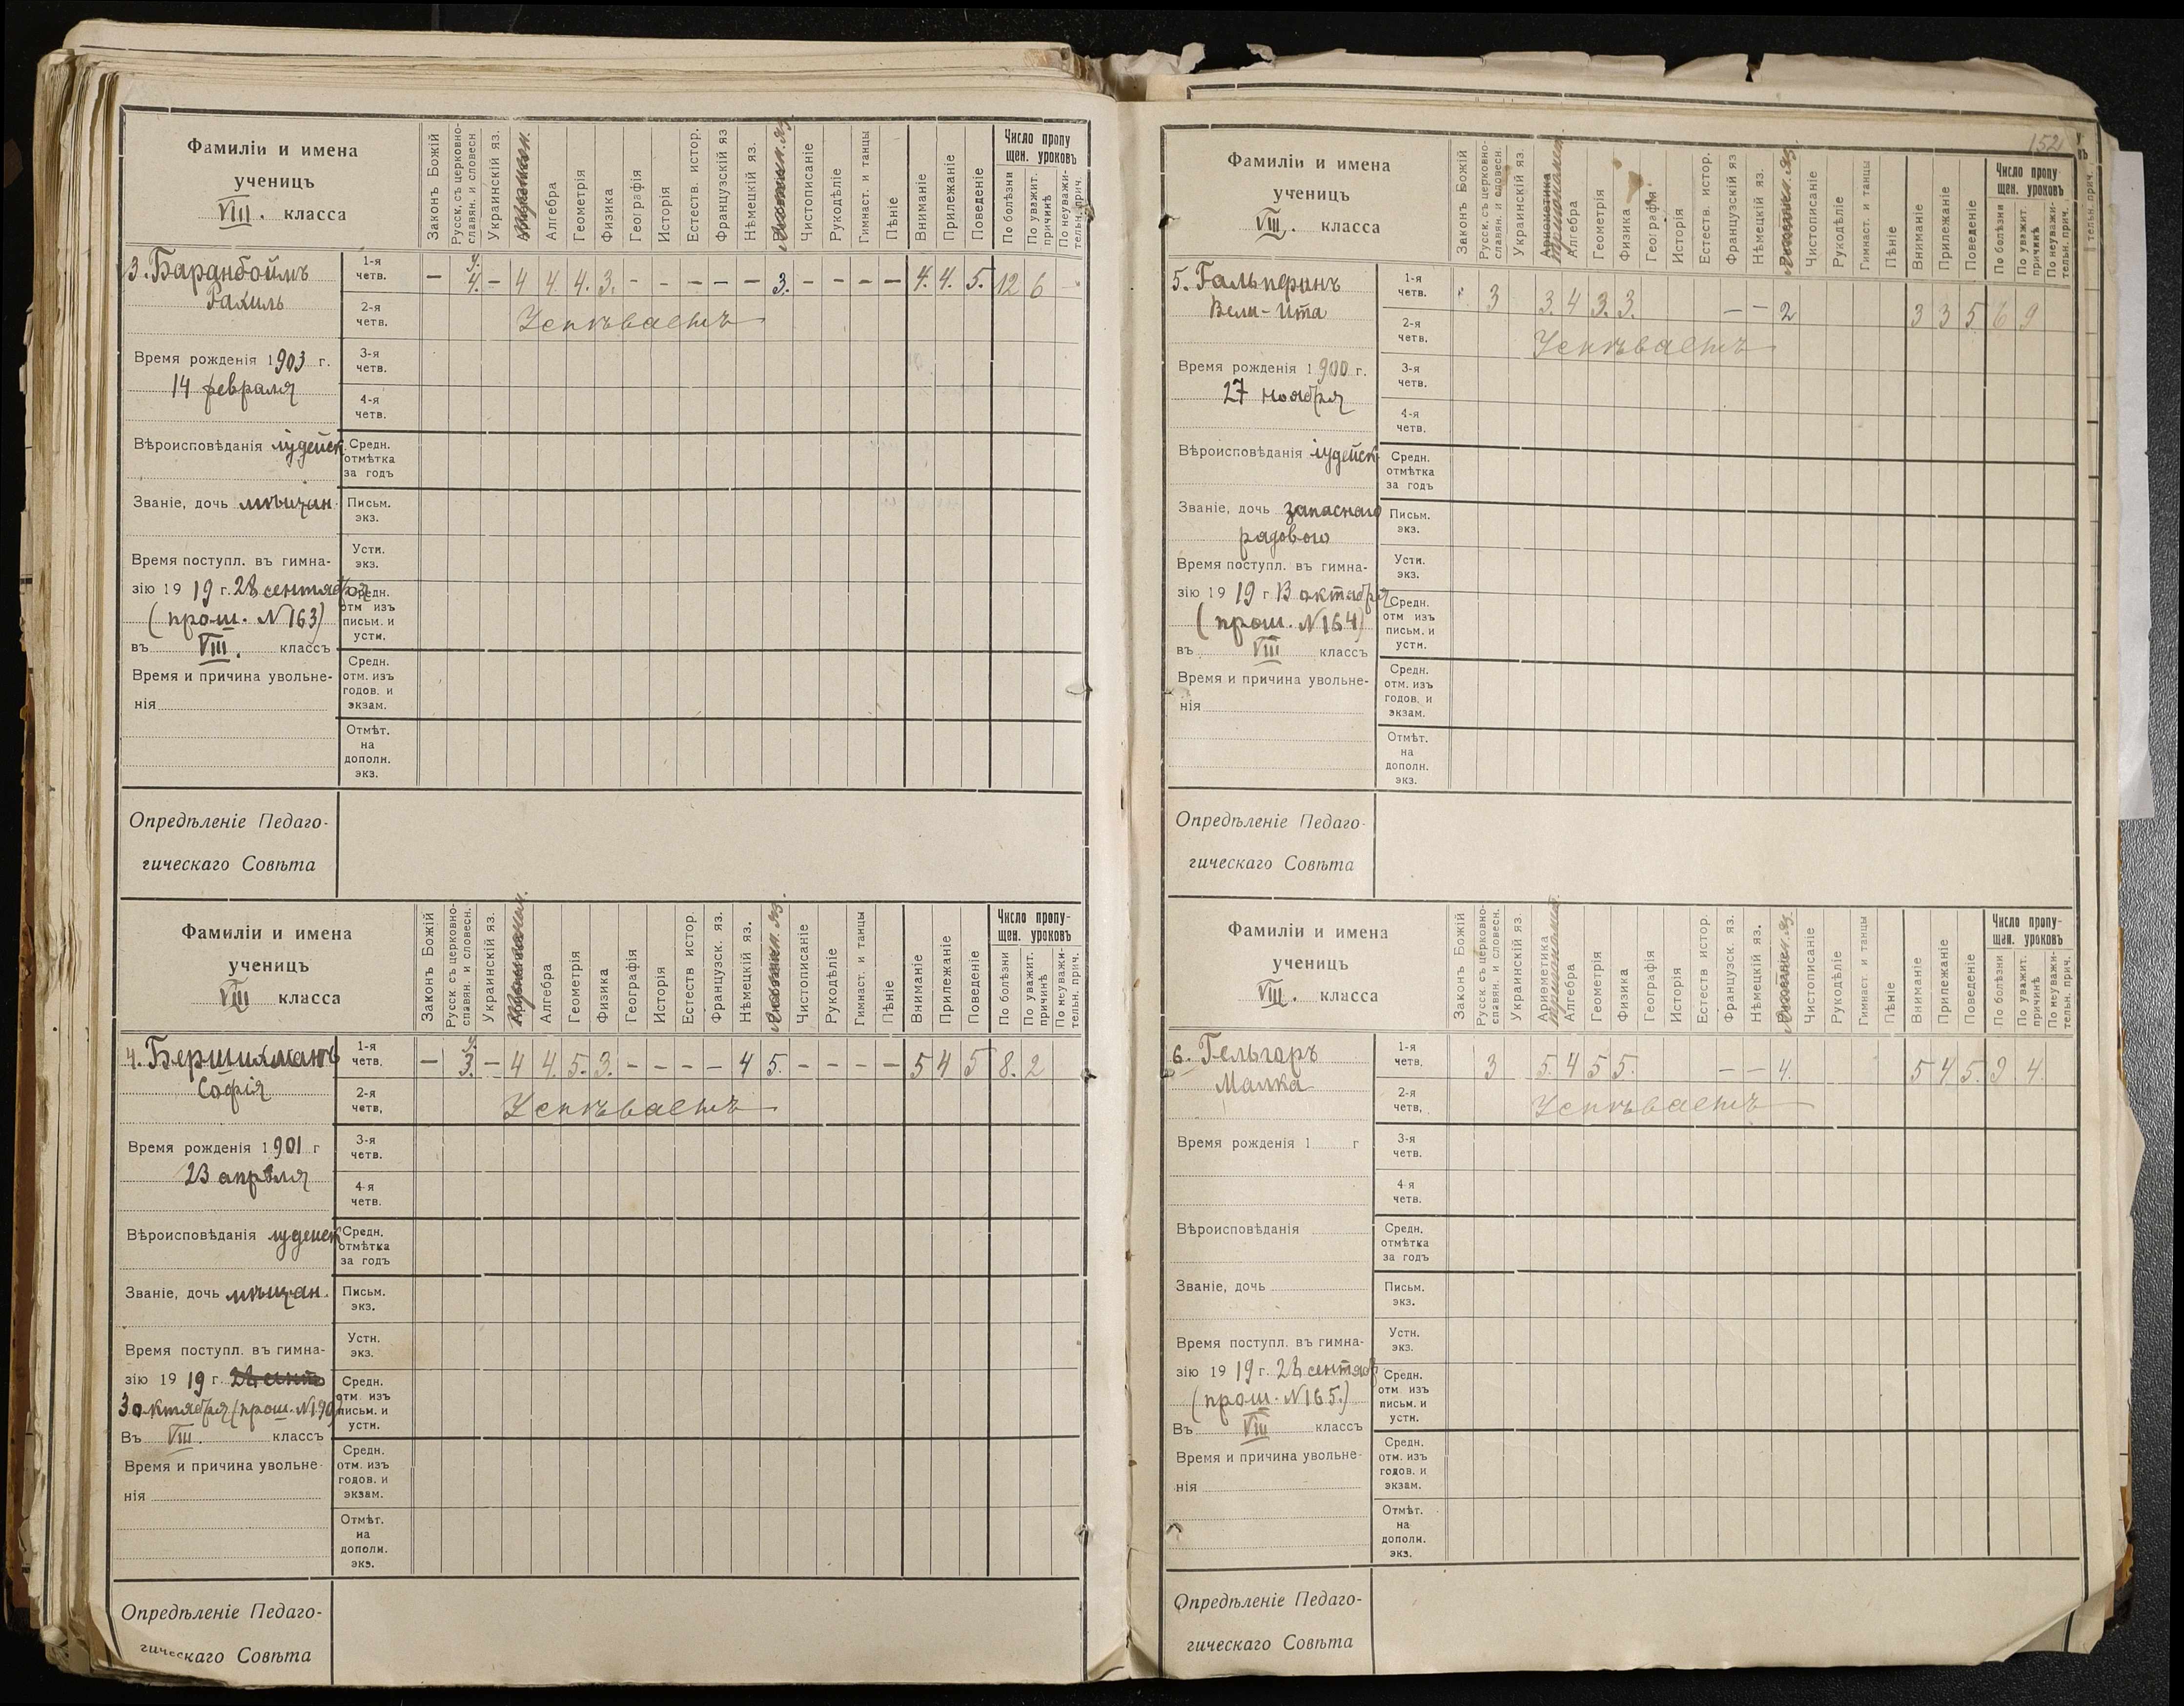 Фамиліи и имена
ученицъ
VIII. класса
Законъ Божій
Русск. съ церковно-
славян. и словесн
Украинскій яз.
Алгебра
Геометрія
Физика
Географія
Исторія
Естеств. истор.
Французскій яз
Нѣмецкій яз.
Чистописаніе
Рукодѣліе
Гимнаст. и танцы
Пѣніе
Вниманіе
Прилежаніе
Поведеніе
Число пропу
щен. уроковъ
По болѣзни
По уважит.
причинѣ
По неуважи-
тельн. прич.
3. Баранбоймъ
Рахиль
1-я
четв.
– 4. – 4 4 4. 3. – – – – – 3. – – – – 4. 4. 5. 12 6 –
2-я
четв.
Успѣваетъ
Время рожденія 1903 г.
14 февраля
3-я
четв.
4-я
четв.
Вѣроисповѣданія іудейск.
Средн.
отмѣтка
за годъ
Званіе, дочь мѣщан.
Письм.
экз.
Время поступл. въ гимна-
зію 19 19 г. 28 сентября
(прош. N 163)
въ VIII. классъ
Устн.
экз.
Средн.
отм изъ
письм. и
устн.
Время и причина увольне-
нія
Средн.
отм. изъ
годов. и
экзам.
Отмѣт.
на
дополн.
экз.
Опредѣленіе Педаго-
гическаго Совѣта
Фамиліи и имена
ученицъ
VIII класса
Законъ Божій
Русск. съ церковно-
славян. и словесн.
Украинскій яз.
Алгебра
Геометрія
Физика
Географія
Исторія
Естеств истор.
Французск. яз.
Нѣмецкій яз.
Чистописаніе
Рукодѣліе
Гимнаст. и танцы
Пѣніе
Вниманіе
Прилежаніе
Поведеніе
Число пропу-
щен. уроковъ
По болѣзни
По уважит.
причинѣ
По неуважи-
тельн. прич.
4. Бершихманъ
Софія
1-я
четв.
– 3. – 4 4. 5. 3. – – – – 4 5. – – – – 5 4 5 8. 2
2-я
четв,
Успѣваетъ
Время рожденія 1901 г
23 апрѣля
3-я
четв.
4-я
четв.
Вѣроисповѣданія іудейск
Средн.
отмѣтка
за годъ
Званіе, дочь мѣщан.
Письм.
экз.
Время поступл. въ гимна-
зію 19 19 г. 28 сент
3 октября (прош. N190)
Въ VIII. классъ
Устн.
экз.
Средн.
отм. изъ
письм. и
устн.
Время и причина увольне-
нія
Средн.
отм. изъ
годов. и
экзам.
Отмѣт.
на
дополн.
экз.
Опредѣленіе Педаго-
гическаго Совѣта
152
Фамиліи и имена
ученицъ
VIII. класса
Законъ Божій
Русск. съ церковно-
славян. и словесн.
Украинскій яз.
Ариѳметика
Алгебра
Геометрія
Физика
Географія
Исторія
Естеств. истор.
Французскій яз
Нѣмецкій яз.
Чистописаніе
Рукодѣліе
Гимнаст. и танцы
Пѣніе
Вниманіе
Прилежаніе
Поведеніе
Число пропу-
щен. уроковъ
По болѣзни
По уважит.
причинѣ
По неуважи-
тельн. прич.
5. Гальперинъ
Вели-Ита
1-я
четв.
3 3. 4 3. 3. – – 2 3 3 5. 6 9
2-я
четв.
Успѣваетъ
Время рожденія 1900 г.
27 ноября
3-я
четв.
4-я
четв.
Вѣроисповѣданія іудейск
Средн.
отмѣтка
за годъ
Званіе, дочь запаснаго
рядового
Письм.
экз.
Время поступл. въ гимна-
зію 19 19 г 13 октября
(прош. N164)
въ VIII классъ
Устн.
экз.
Средн.
отм изъ
письм. и
устн.
Время и причина увольне-
нія
Средн.
отм. изъ
годов. и
экзам.
Отмѣт.
на
дополн.
экз.
Опредѣленіе Педаго-
гическаго Совѣта
Фамиліи и имена
ученицъ
VIII. класса
Законъ Божій
Русск. съ церковно-
славян. и словесн.
Украинскій яз.
Ариѳметика
Алгебра
Геометрія
Физика
Географія
Исторія
Естеств истор.
Французск. яз.
Нѣмецкій яз.
Чистописаніе
Рукодѣліе
Гимнаст. и танцы
Пѣніе
Вниманіе
Прилежаніе
Поведеніе
Число пропу-
щен. уроковъ
По болѣзни
По уважит.
причинѣ
По неуважи-
тельн. прич.
6. Гельгоръ
Малка
1-я
четв.
3 5. 4 5 5. – – 4. 5 4 5. 9 4.
2-я
четв,
Успѣваетъ
Время рожденія 1 г
3-я
четв.
4-я
четв.
Вѣроисповѣданія
Средн.
отмѣтка
за годъ
Званіе, дочь
Письм.
экз.
Время поступл. въ гимна-
зію 19 19 г. 28 сентяб
(прош. N165.)
Въ VIII классъ
Устн.
экз.
Средн.
отм. изъ
письм. и
устн.
Время и причина увольне-
нія
Средн.
отм. изъ
годов. и
экзам.
Отмѣт.
на
дополн.
экз.
Опредѣленіе Педаго-
гическаго Совѣта